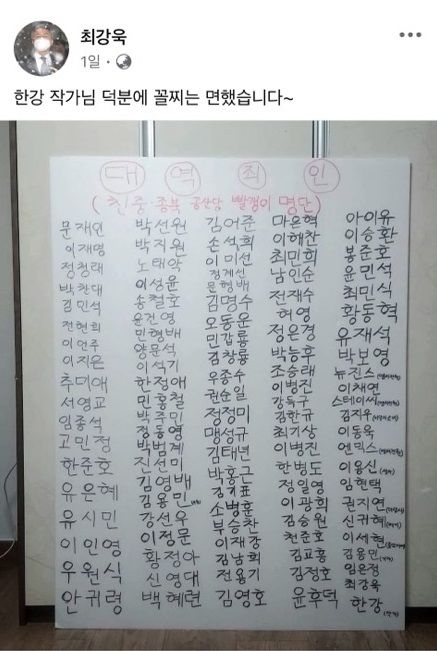 최강욱
1일 ·
한강 작가님 덕분에 꼴찌는 면했습니다~
대 역 죄 인
(친중·종북 공산당 빨갱이 명단)
문재인
이재명
정청래
박찬대
김민석
전현희
이언주
이지은
추미애
서영교
임종석
고민정
한준호
유은혜
유시민
이인영
우원식
안귀령
박선원
박지원
노태악
이성윤
송철호
윤건영
민형배
양문석
이석기
한정애
민홍철
박주민
정동영
박범계
진선미
김영배
김용민
강선우
이정문
황정아
신영대
백혜련
김어준
손석희
이미선
정계선
문형배
김명수
오동운
민갑룡
김창룡
우종수
권순일
정정미
맹성규
김태년
박홍근
김기표
소병훈
부승찬
이재강
김남희
전용기
김영호
마은혁
이해찬
최민희
남인순
전재수
허영
정은경
박능후
조승래
이병진
강득구
김한규
최기상
이병진
한병도
정일영
이광희
김승원
천준호
김교흥
김정호
윤후덕
아이유
이승환
봉준호
윤민석
최민식
황동혁
유재석
박보영
뉴진스
이채연
스테이씨
김지우
이동욱
엔믹스
이용신
임현택
권지연
신귀혜
이세현
김용민
임은정
최강욱
한강